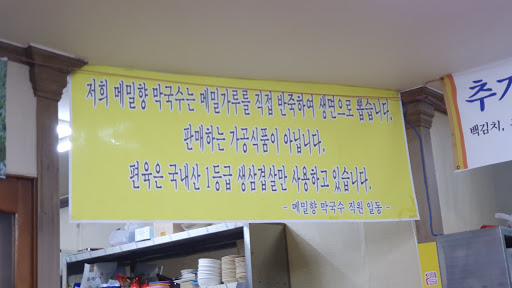 저희 메밀향 막국수는 메밀가루를 직접 반죽하여 생면으로 뽑습니다.
판매하는 가공식품이 아닙니다.
편육은 국내산 1등급 생삼겹살만 사용하고 있습니다.
- 메밀향 막국수 직원 일동 -
추가
백김치,